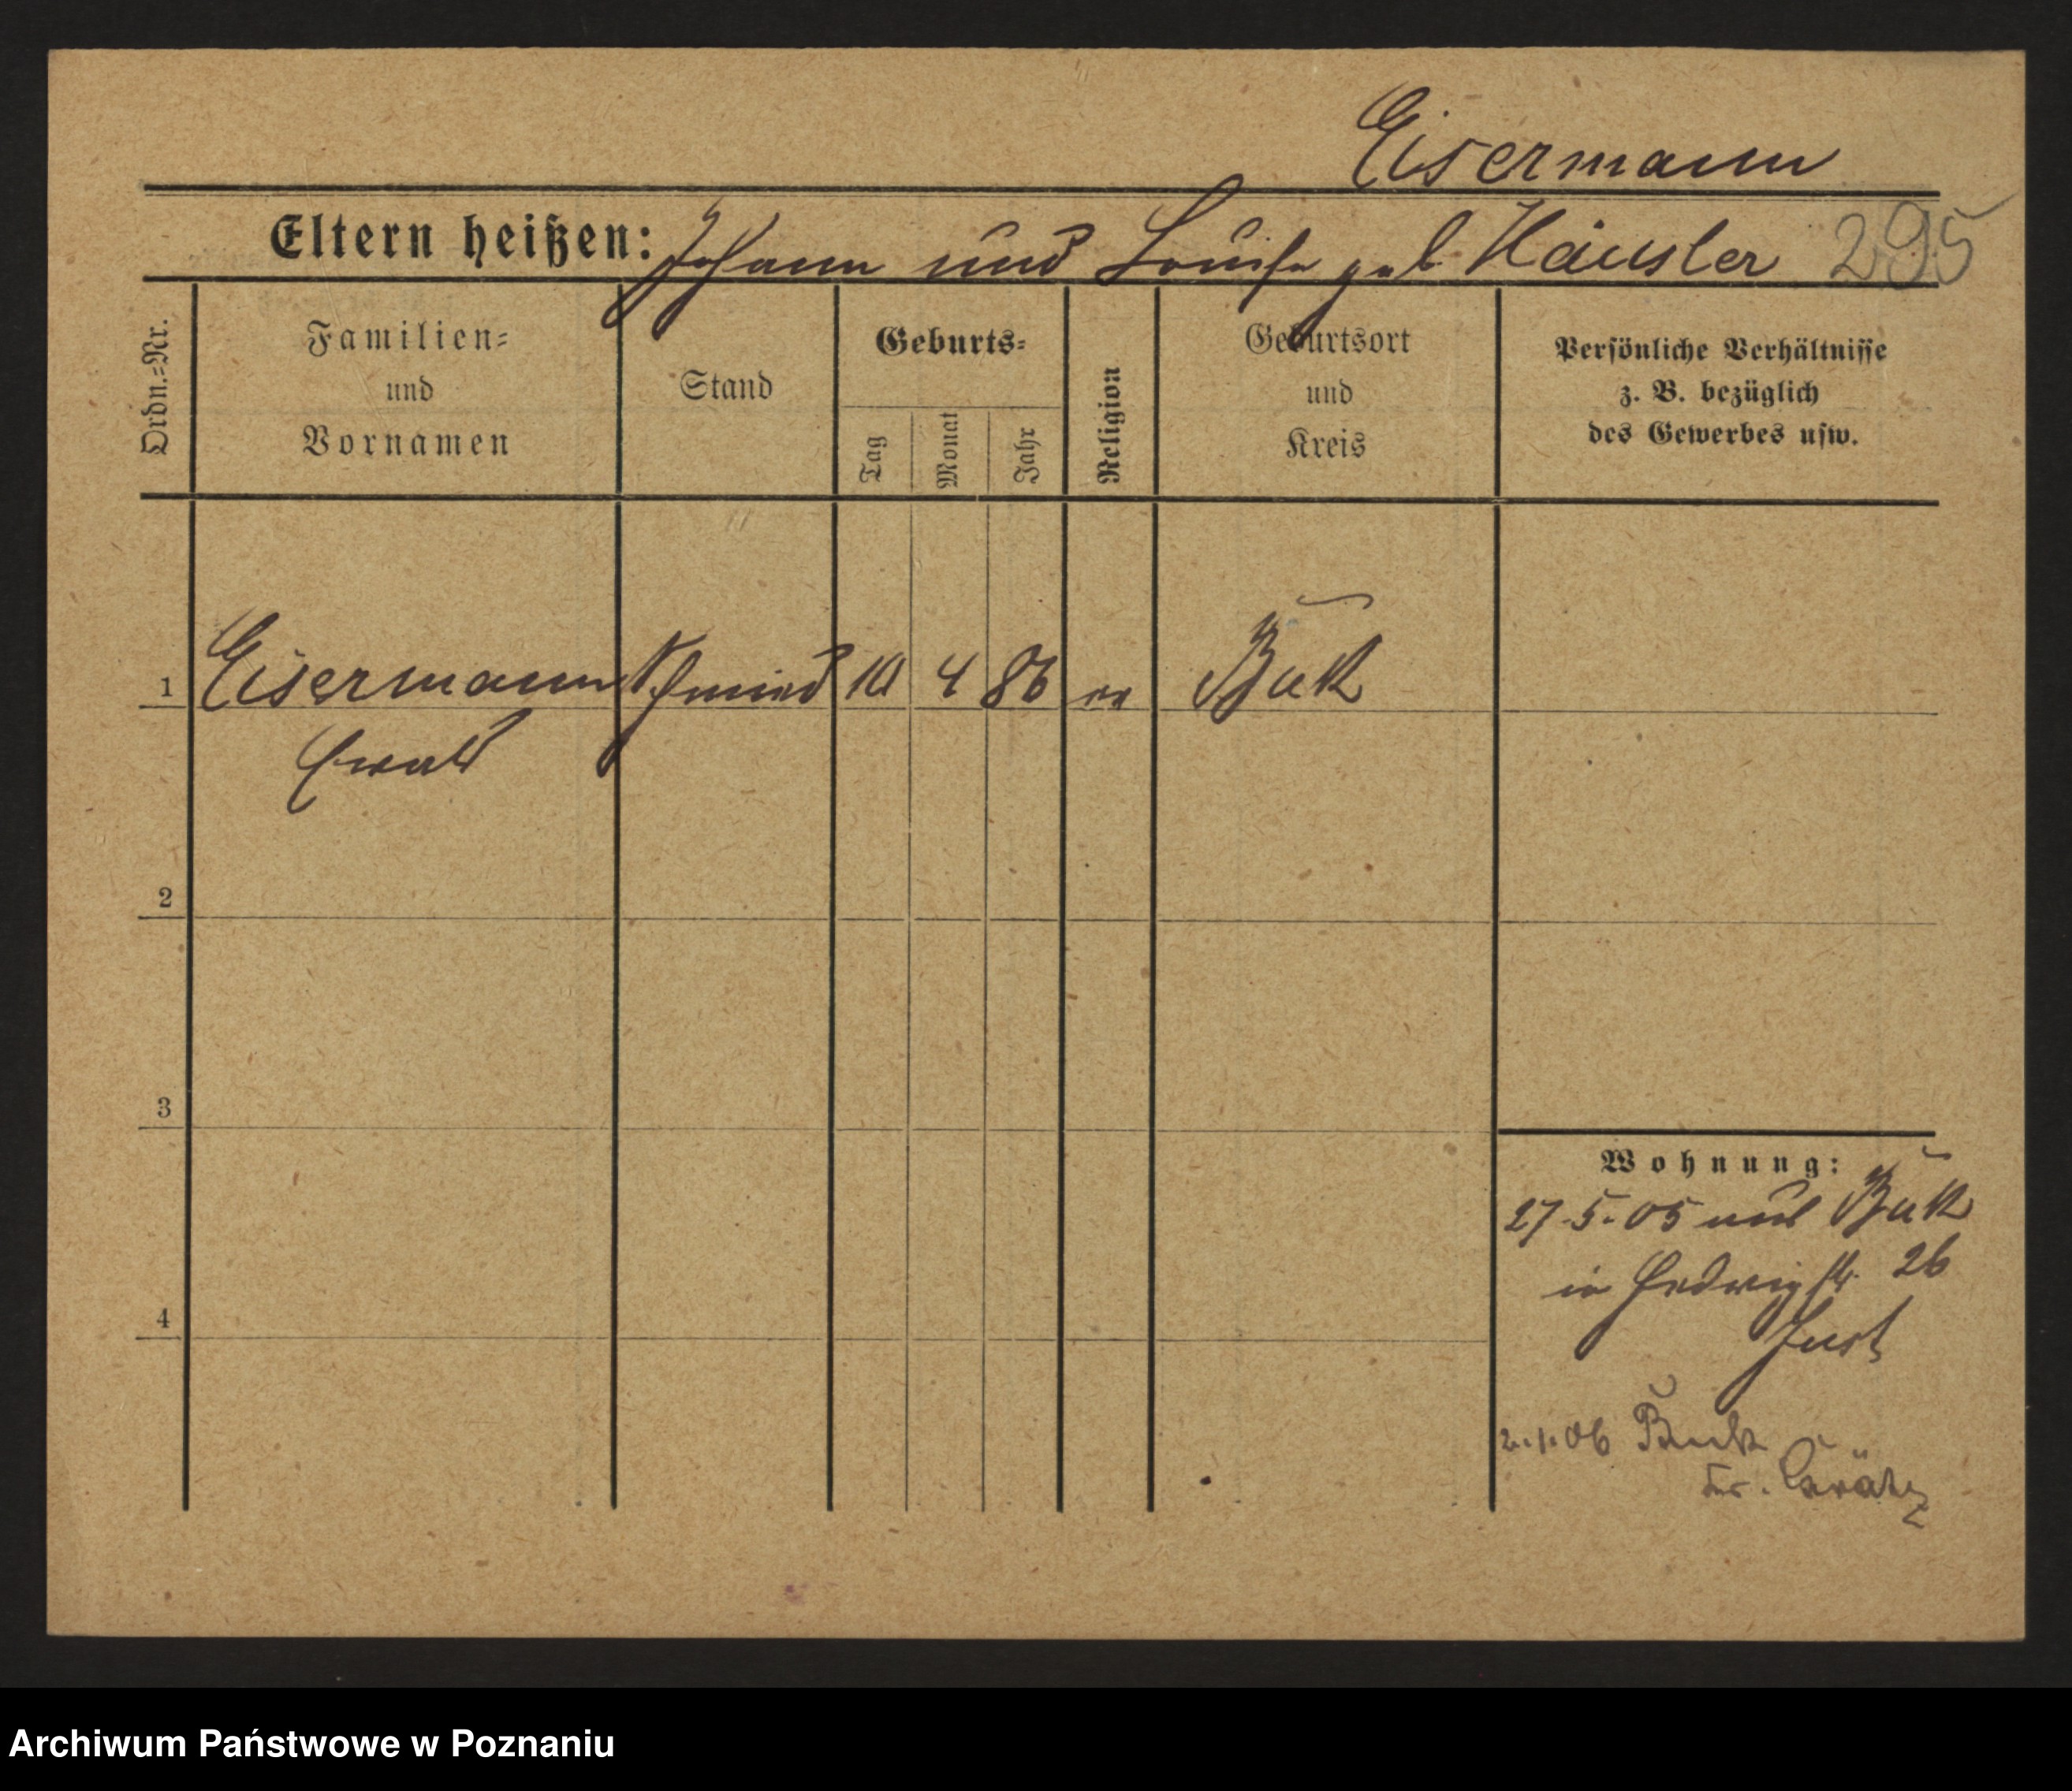 Eisermann
Eltern heißen: Johann und Louise geb. Häusler 295
Ordn.=Nr.
Familien=
und
Vornamen
Stand
Geburts=
Tag
Monat
Jahr
Religion
Geburtsort
und
Kreis
Persönliche Verhältnisse
z. B. bezüglich
des Gewerbes usw.
1 Eisermann Schmied 10 4 86 ev Buk
Ewald
2
3
4
Wohnung:
27.5.05 aus Buk
in Hedwigstr. 26
2.1.06 Buk
Kr. Grätz
Archiwum Państwowe w Poznaniu